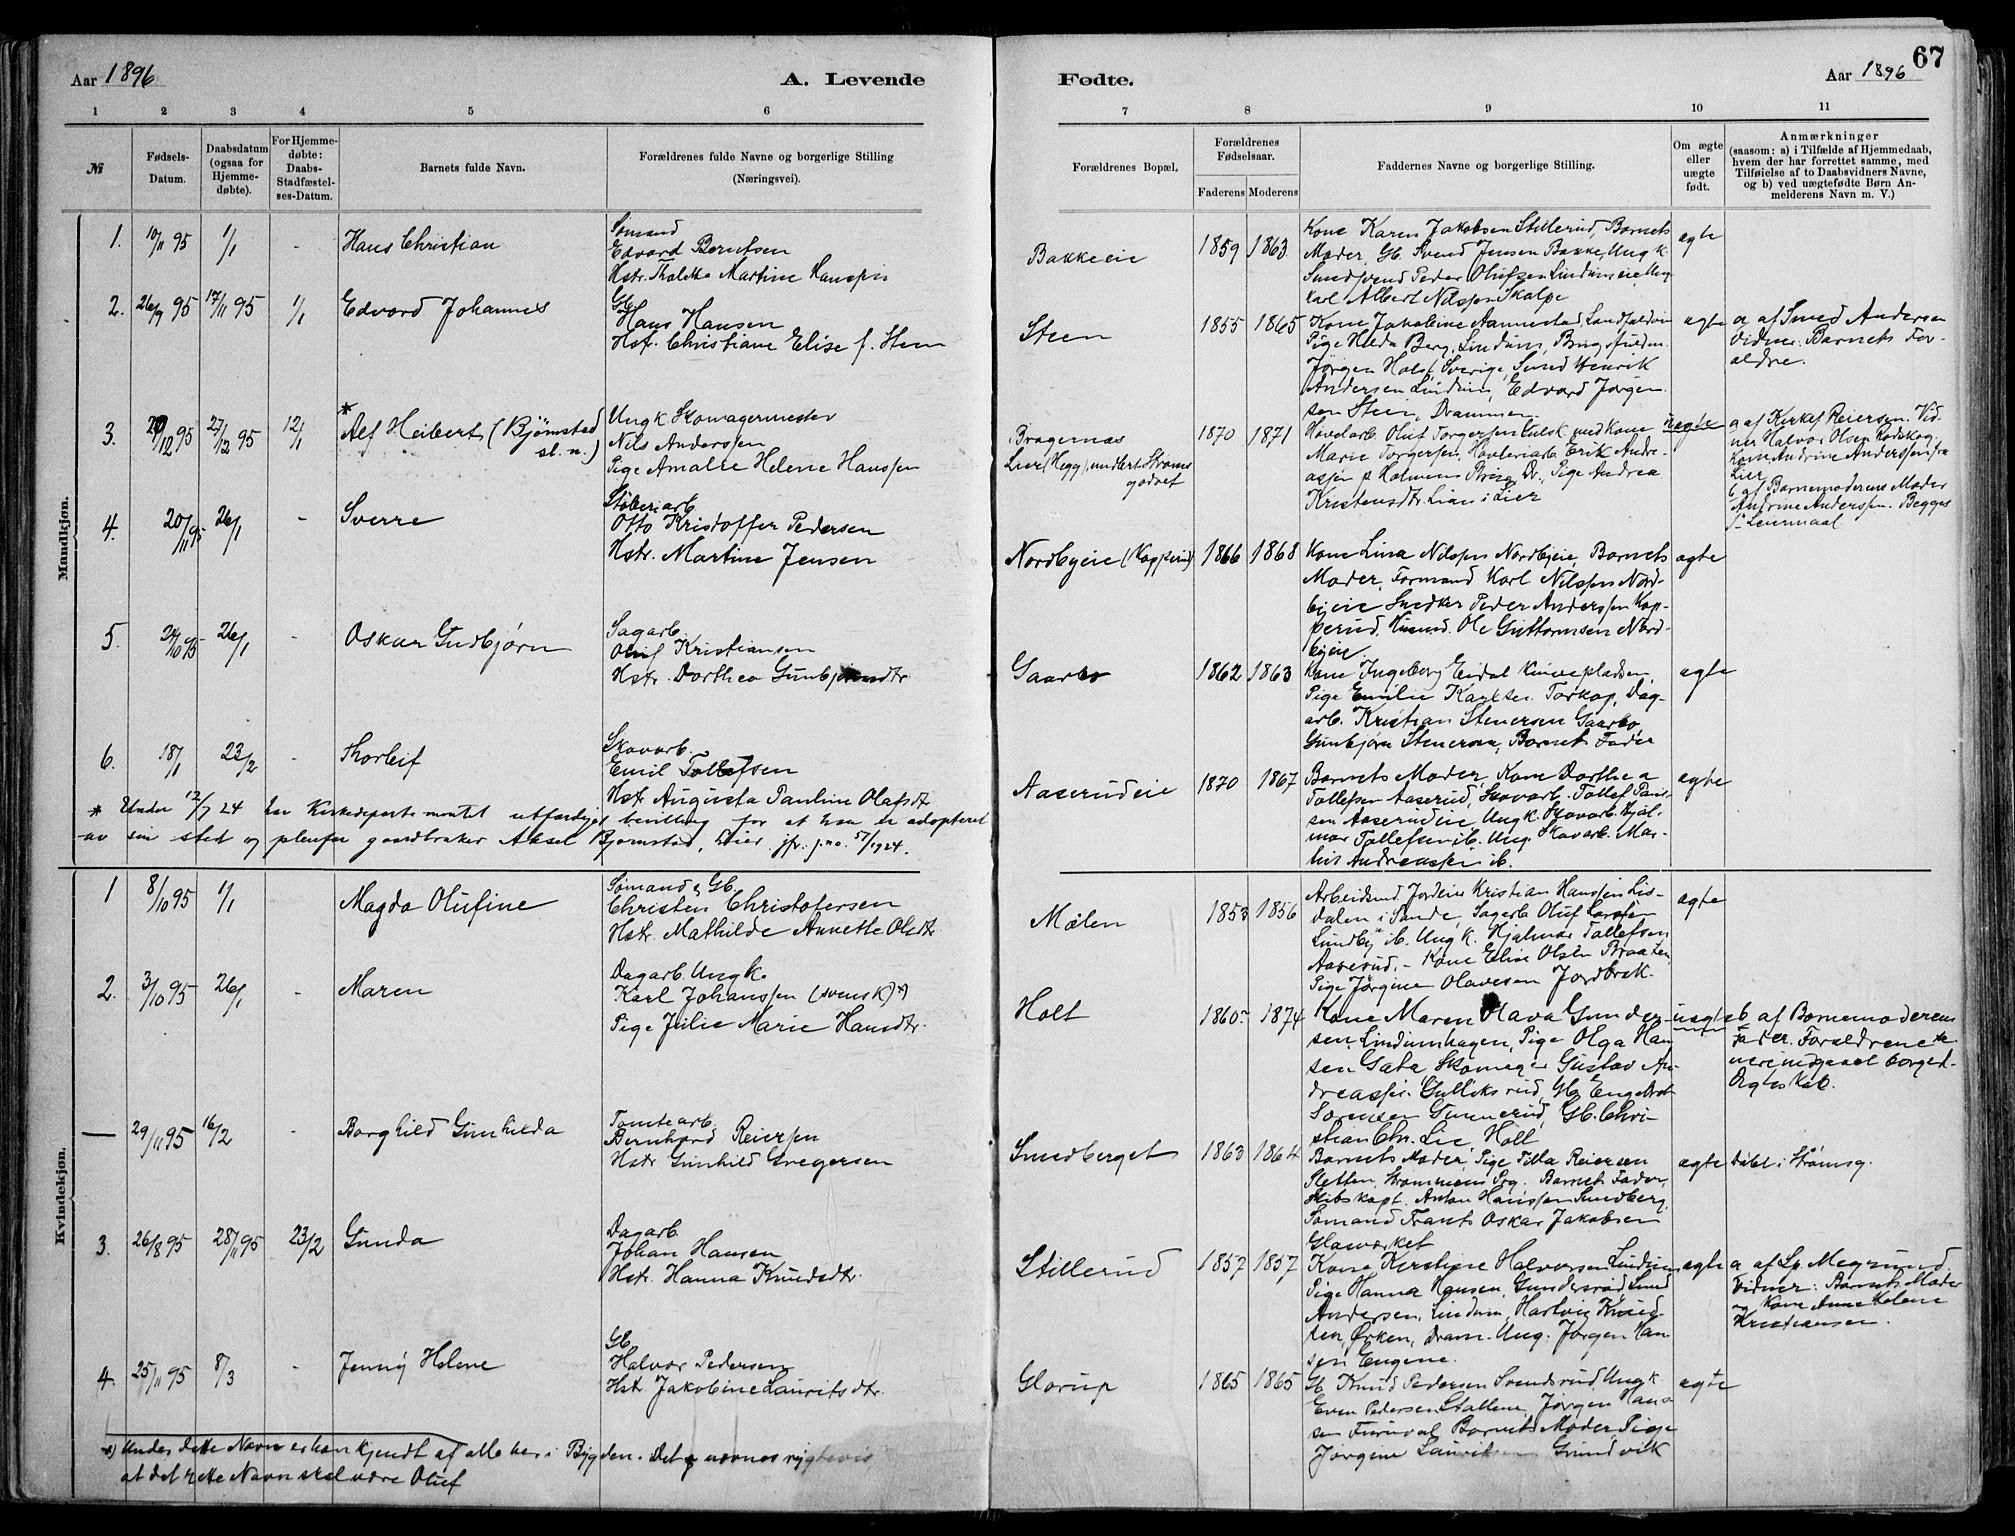 67
Aar 1896
A. Levende
Fødte.
Aar 1896
1 2 3 4 5 6
7 8 9 10 11
№
Fødsels-
Datum.
Daabsdatum
(ogsaa for
Hjemme-
døbte).
For Hjemme-
døbte:
Daabs-
Stadfæstel-
ses-Datum.
Barnets fulde Navn.
Forældrenes fulde Navne og borgerlige Stilling
(Næringsvei).
Forældrenes Bopæl.
Forældrenes
Fødselsaar.
Faderens Moderens
Faddernes Navne og borgerlige Stilling.
Om ægte
eller
uægte
født.
Anmærkninger
(saasom: a) i Tilfælde af Hjemmedaab,
hvem der har forrettet samme, med
Tilføielse af to Daabsvidners Navne,
og b) ved uægtefødte Børn An-
melderens Navn m. V.)
Mandkjøn.
1. 10/11 95 1/1 - Hans Christian
Sømand
Edvard Berntsen
Hstr. Thalette Martine Hanssen
Bakkeeie 1859 1863
Kone Karen Jakobsen Stillerud, Barnets
Moder, Gb. Svend Jensen Bakke, Ungk.
Smedsvend Peder Olufsen Lindumeie, Ung
karl Albert Nilssen Skalpe
ægte
2. 26/9 95 17/11 95 1/1 Edvard Johannes
Gb.
Hans Hansen
Hst. Christiane Elise f. Steen
Steen 1855 1865
Kone Jakobine Aannestad, Landfaldøen
Pige Hilda Berg, Lindum, Brugsfuldm.
Jørgen Holst, Sverige, Smed Henrik
Andersen Lindum, Edvard Jørgen
sen Steen, Drammen
ægte
a af Smed Andersen
Vidner: Barnets For-
ældre.
3. 12 95 27/12 95 12/1 * Alf Heibert (Bjørnstad
sl. n.)
Ungk Skomagermester
Nils Anderssen
Pige Amalie Helene Hanssen
Bragernæs
Lier (Hegg), under Strøms
godset
1870 1871
Høvelarb. Oluf Torgersen Tulsk med Kone
Marie Torgersen, Høvleriarb. Erik Andre-
assen p Holmens Brug, Dr, Pige Andrea
Kristensdtr. Lian i Lier
uægte
a af Kirkes. Reiersen. Vid-
ner Halvor Olsen Rødskog
Kone Andrine Anderssen fra
Lier
b af Barnemoderens Moder
Andrine Anderssen. Begges
1ste Leiermaal
4. 20/11 95 26/1 - Sverre
Støberiarb
Otto Kristoffer Pedersen
Hstr. Martine Jensen
Nordbyeie (Kopperud) 1866 1868
Kone Lina Nilssen Nordbyeie, Barnets
Moder, Formand Karl Nilssen Nord-
byeie Snedker Peder Anderssen Kop-
perud, Husmd. Ole Guttormsen Nord-
byeie
ægte
5. 24/10 95 26/1 - Oskar Gudbjørn
Sagarb.
Oluf Kristiansen
Hstr. Dorthea Gunbjørnsdtr.
Gaarbo 1862 1863
Kone Ingeborg Eidal Kniveplassen
Pige Emilie Karlsen Torkop, Dag-
arb. Kristian Stenersen Gaarbo,
Gunbjørn Stenersen, Barnets Fader
ægte
6. 18/1 23/2 - Thorleif
Skovarb.
Emil Tollefsen
Hst. Augusta Pauline Olafsdt
Aaserudeie 1870 1867
Barnets Moder, Kone Dorthea
Tollefsen Aaserud, Skovarb. Tollef Paus-
sen Aaserudeie Ungk. Skovarb. Hjal-
mar Tollefsen ib. Ung. Skovarb. Mar-
tius Andreassen ib.
ægte
* Under 12/7 24 har Kirkedepartementet utfærdiget bevilling for at han er adopteret
av sin sted og pleiefar gaardbruker Aksel Bjørnstad, Lier. jfr. j.no. 57/1924.
Kvindekjøn.
1 8/10 95 1/1 Magda Olufine
Sømand & Gb.
Christen Christofersen
Hstr. Mathilde Annette Olsdtr.
Mølen 1853 1856
Arbeidsmd Jordeier Kristian Hanssen Lis-
dalen i Sande, Sagarb. Oluf Larssen
Lundby ib. Ung k. Hjalmar Tollefsen
Aaserud, - Kone Elise Olsen Braaten
Pige Jørgine Olavesen Jordbræk.
ægte
2. 3/10 95 26/1 - Maren
Dagarb. Ungk.
Karl Johanssen (svensk) *)
Pige Julie Marie Hansdtr.
Holt 1860 1874
Kone Maren Olava Gunder-
sen Lindumhagen, Pige Olga Han
sen Gata, Skomager Gustav An
dreassen Gulliksrud, Gb. Engebret
Sørensen Gunnerud, Gb. Chri-
stian Chr. Lie, Holt
uægte
b af Barnemoderens
Fader. Forældrene
indgaaet borgerl.
Ægteskab.
— 29/11 95 16/2 - Borghild Gunhilda
Tomtearb.
Bernhard Reiersen
Hstr. Gunhild Gregersen
Smedberget 1863 1864
Barnets Moder, Pige Tilla Reiersen
Sletten, Strømmens Sog. Barnets Fader,
Skibskapt. Anton Hanssen Smedberg,
Sømand Frants Oskar Jakobsen
Glasværket
ægte Døbt i Strømsg.
3. 26/8 95 28/11 95 23/2 Gunda
Dagarb.
Johan Hansen
Hstr. Hanna Knudsdtr.
Stillerud 1857 1857
Kone Kirstine Halvorsen Lindum
Pige Hanna Hansen, Gundersrød Smed
Andersen, Lindum, Hartvig Knud-
sen, Ørken, Dram. Ung. Jørgen Han
sen Engene.
ægte
a af Sp. Megrund
Vidner: Barnets Moder
og Kone Anne Helene
Kristiansen.
4. 25/11 95 8/3 - Jenny Helene
Gb.
Halvor Pedersen
Hstr. Jakobine Lauritsdtr.
Glorup 1865 1865
Gb. Knud Pedersen Svendsrud, Ungk
Even Pedersen Stallene, Jørgen Hans-
sen Furuval Barnets Moder, Pige
Jørgine Lauritsen Grundvik
ægte
*) Under dette Navn er han kjendt af alle her i Bygden. Det nævnes rygtevis
at det rette Navn skal være Oluf